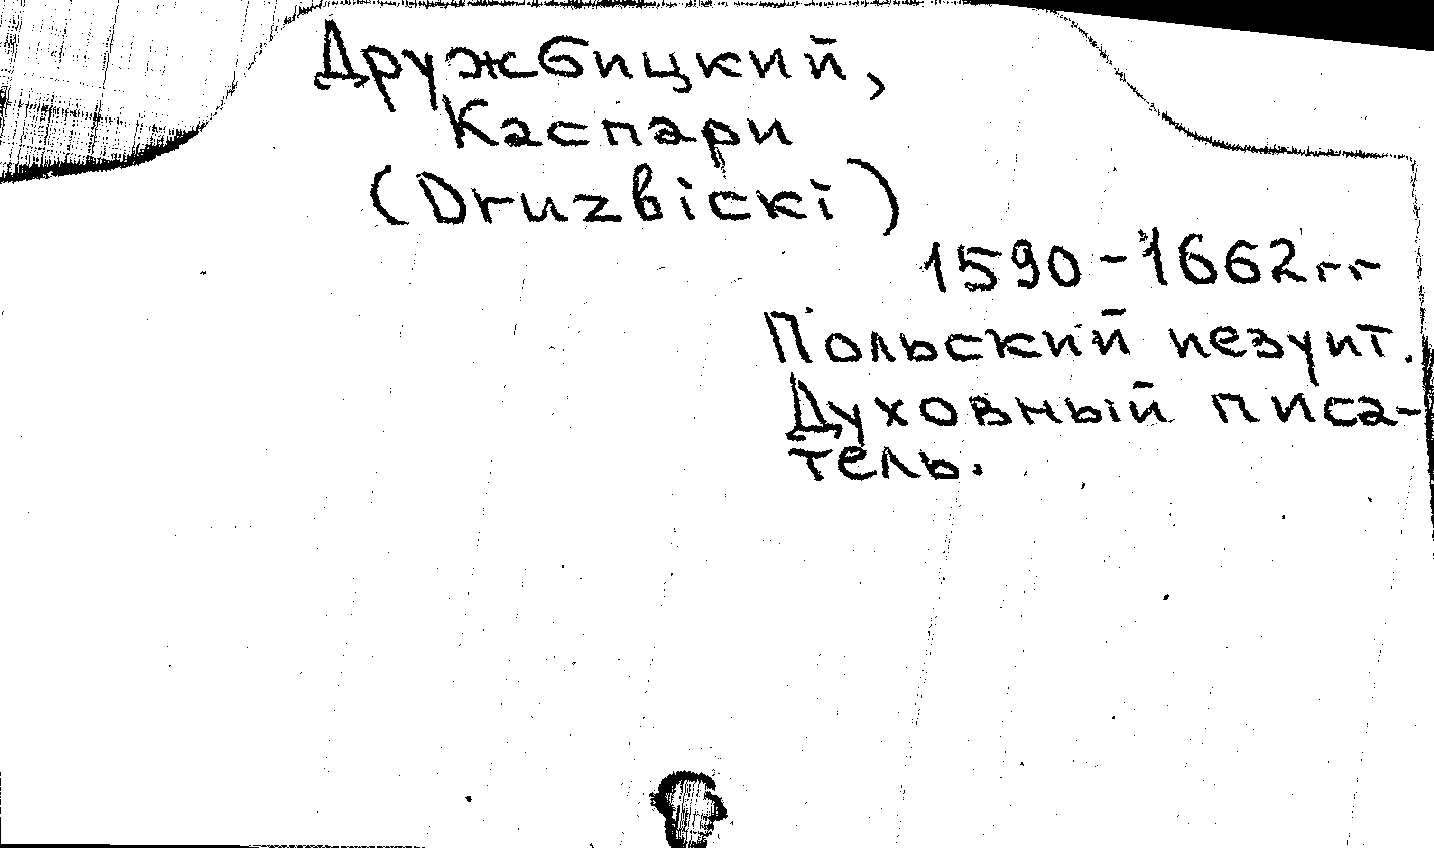 Дружбицкий,
Каспари
(Druzbicki)
1590-1662гг
Польский иезуит.
Духовный писа-
тель.